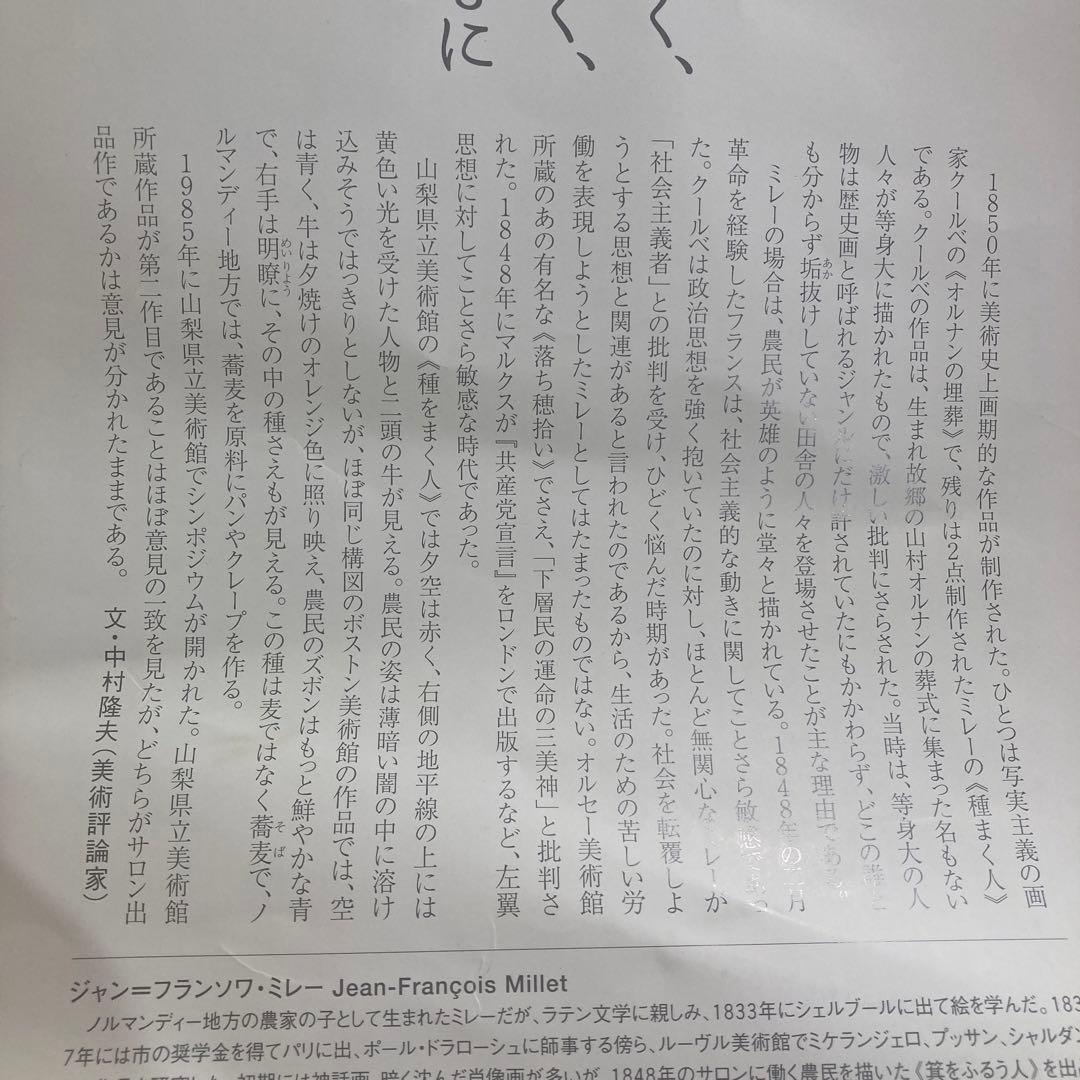 く、
く、
に
1850年に美術史上画期的な作品が制作された。ひとつは写実主義の画
家クールベの《オルナンの埋葬》で、残りは2点制作されたミレーの《種まく人》
である。クールベの作品は、生まれ故郷の山村オルナンの葬式に集まった名もない
人々が等身大に描かれたもので、激しい批判にさらされた。当時は、等身大の人
物は歴史画と呼ばれるジャンルにだけ許されていたにもかかわらず、どこの誰と
も分からず垢抜けしていない田舎の人々を登場させたことが主な理由である。
あか
ミレーの場合は、農民が英雄のように堂々と描かれている。1848年の二月
革命を経験したフランスは、社会主義的な動きに関してことさら敏感であっ
た。クールベは政治思想を強く抱いていたのに対し、ほとんど無関心なミレーが
「社会主義者」との批判を受け、ひどく悩んだ時期があった。社会を転覆しよ
うとする思想と関連があると言われたのであるから、生活のための苦しい労
働を表現しようとしたミレーとしてはたまったものではない。オルセー美術館
所蔵のあの有名な《落ち穂拾い》でさえ、「下層民の運命の三美神」と批判さ
れた。1848年にマルクスが『共産党宣言』をロンドンで出版するなど、左翼
思想に対してことさら敏感な時代であった。
山梨県立美術館の《種をまく人》では夕空は赤く、右側の地平線の上には
黄色い光を受けた人物と二頭の牛が見える。農民の姿は薄暗い闇の中に溶け
込みそうではっきりとしないが、ほぼ同じ構図のボストン美術館の作品では、空
は青く、牛は夕焼けのオレンジ色に照り映え、農民のズボンはもっと鮮やかな青
で、右手は明瞭に、その中の種さえもが見える。この種は麦ではなく蕎麦で、ノ
めいりょう
そば
ルマンディー地方では、蕎麦を原料にパンやクレープを作る。
1985年に山梨県立美術館でシンポジウムが開かれた。山梨県立美術館
所蔵作品が第二作目であることはほぼ意見の一致を見たが、どちらがサロン出
品作であるかは意見が分かれたままである。 文・中村隆夫(美術評論家)
ジャン=フランソワ・ミレー Jean-François Millet
ノルマンディー地方の農家の子として生まれたミレーだが、ラテン文学に親しみ、1833年にシェルブールに出て絵を学んだ。183
7年には市の奨学金を得てパリに出、ポール・ドラローシュに師事する傍ら、ルーヴル美術館でミケランジェロ、プッサン、シャルダン
初期には神話画、暗く沈んだ肖像画が多いが、1848年のサロンに働く農民を描いた《箕をふるう人》を出